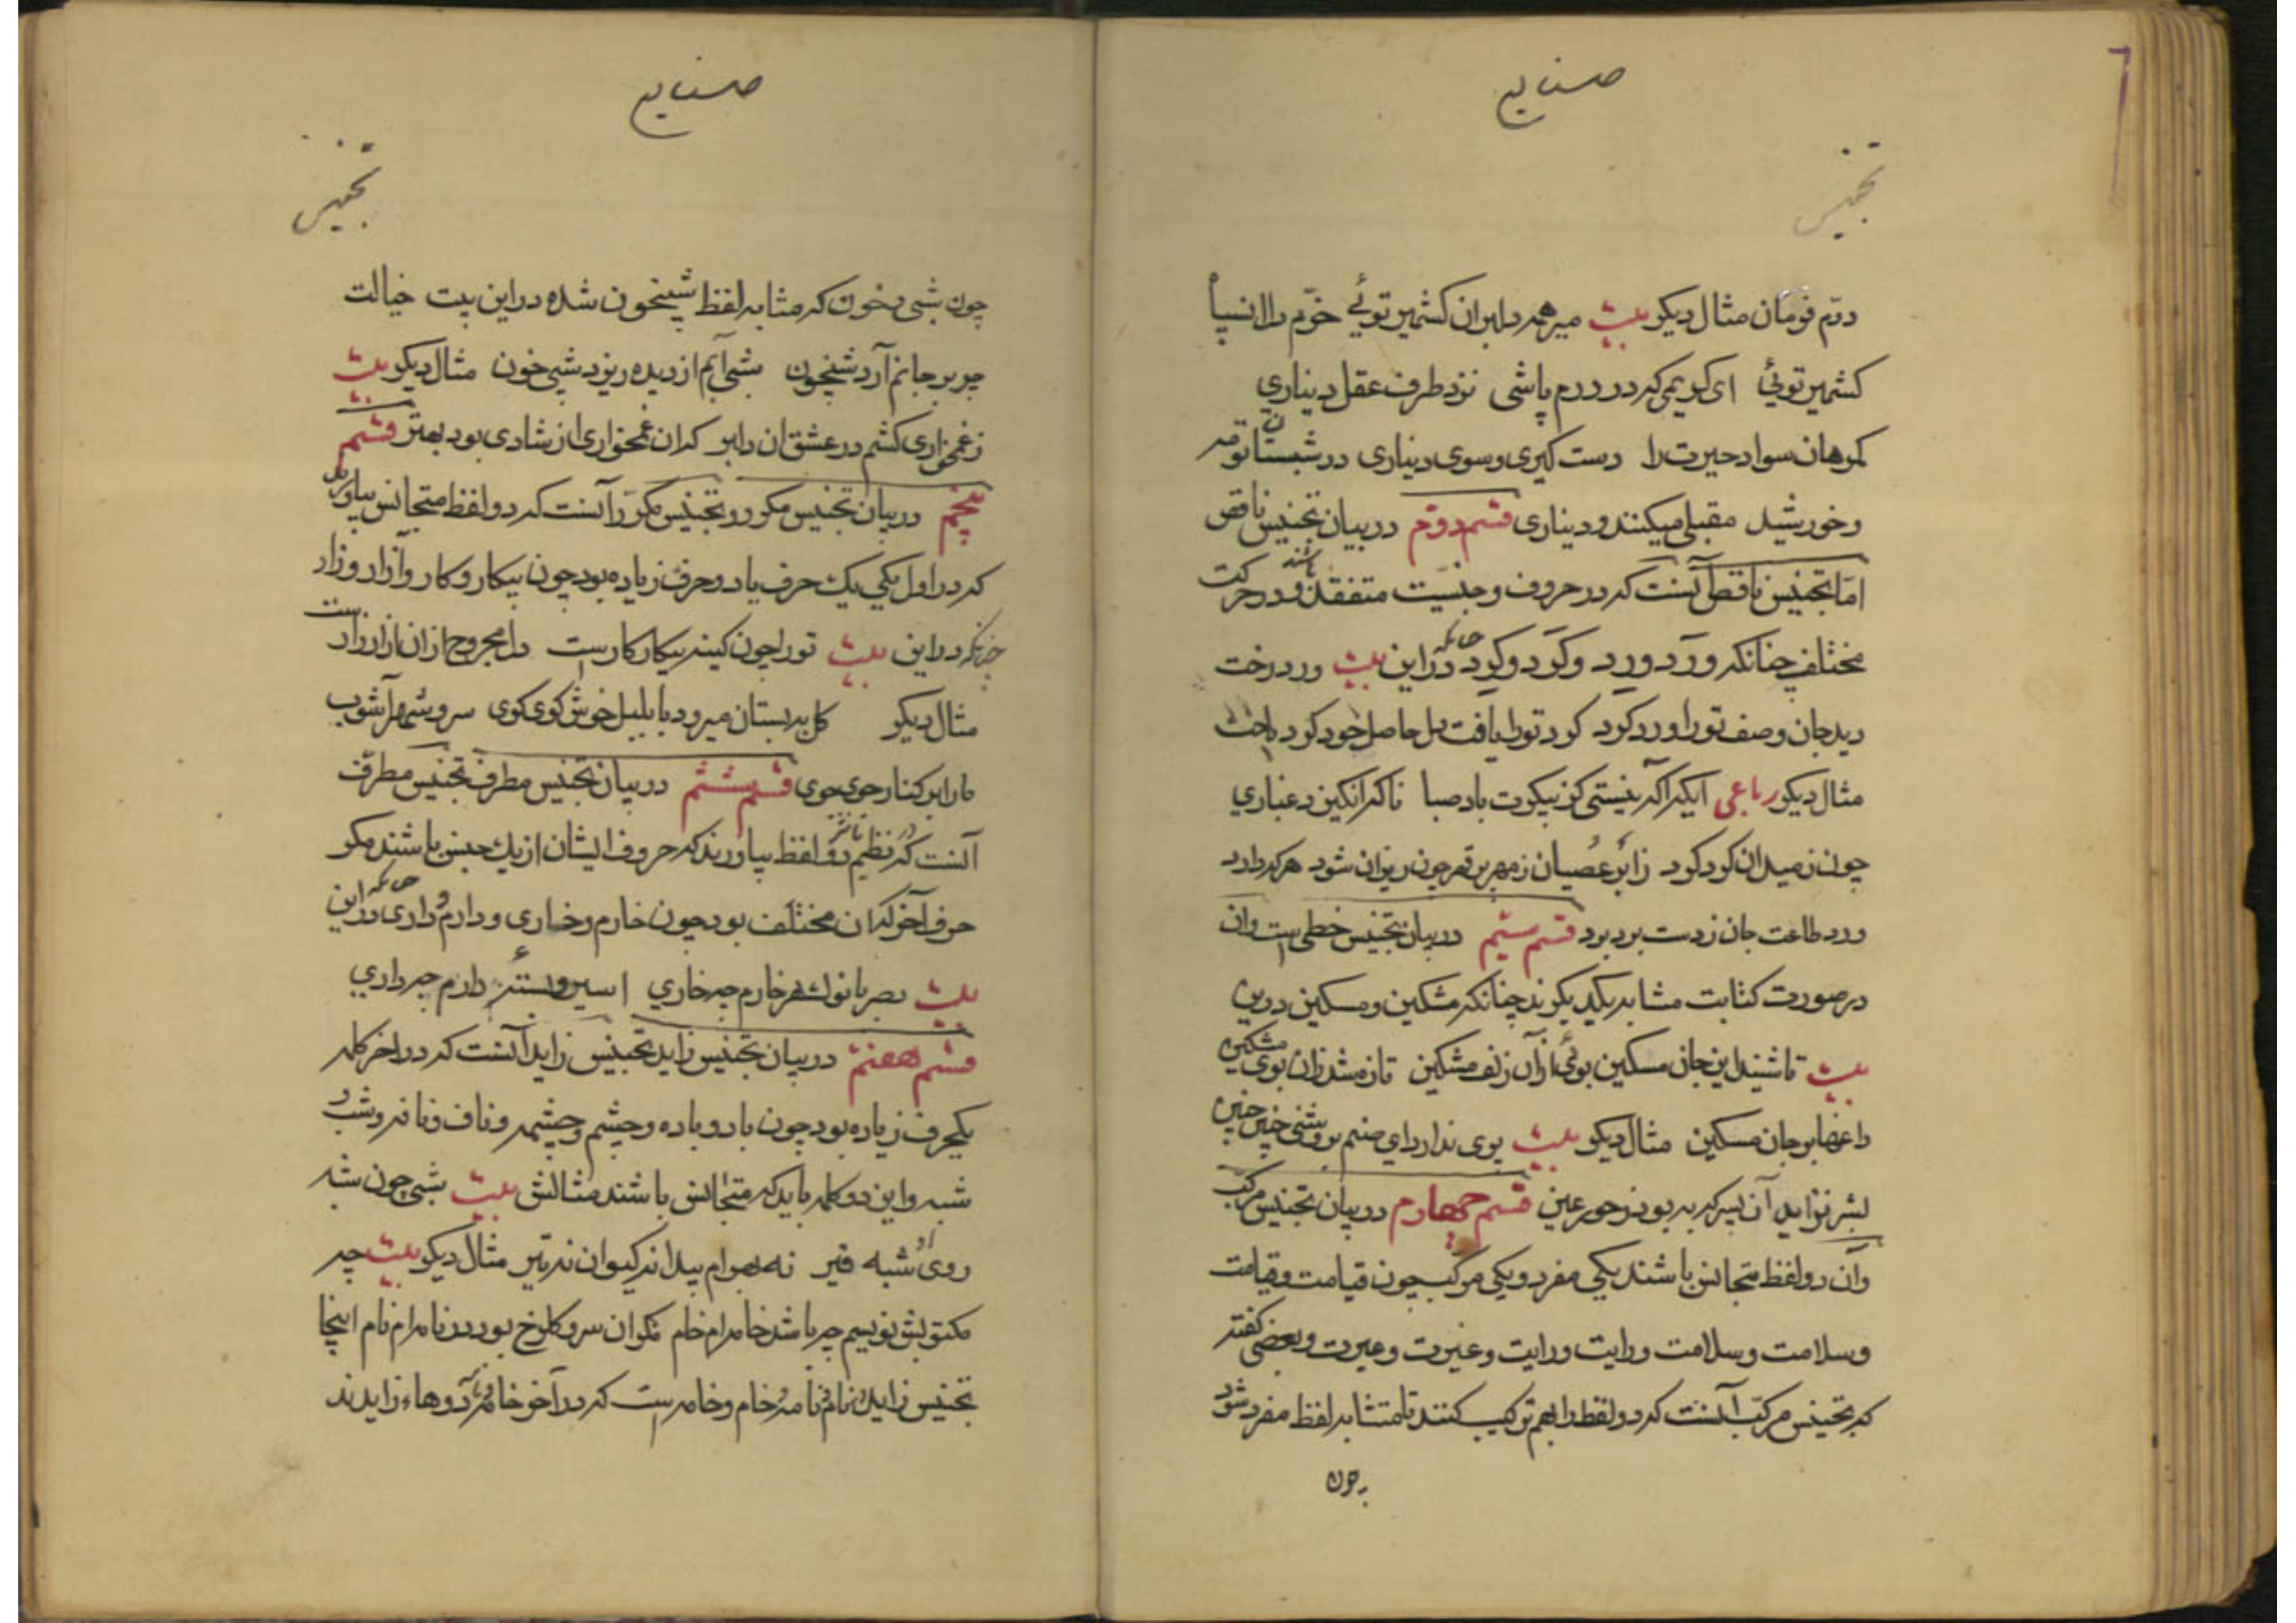 صنایع
تجنیس
درّم فومان مثال دیکر بیت میر همه دلبران کشمیر توئي خوّم دل انسپاه
کشمیر توئي ای کریمی که در درم پاشی نزد طرف عقل دیناري
کمرهان سواد حیرت را دست کیری و سوی دیناری در شبستان تو مه
وخورشید مقبلی میکنند و دیناری قسم دوّم در بیان تجنیس ناقص
امّا تجنیس ناقص آنست که در حروف و جنسیت متفقند باشند و در حرکت
مختلف چنانکه وَرد و وِرد و کَرد و کرد چنانکه در این بیت ورد رخت
دید جان وصف تو را ورد کرد کرد تو را یافت دل حاصل خود کرد باخت
مثال دیکر رباعی ایکه اکر نیستی کز بیکوت باد صبا ناکه انکیزد غباري
چون ز میدان کود کود زائر عصیان ز مهر بر تو چون ریزان شود هر که دارد
ورد طاعت جان ز دست برد برد قسم سیّم در بیان تجنیس خطی است و ان
در صورت کتابت مشابه یکدیکرند چنانکه مشکین و مسکین درین
بیت تا شنید این جان مسکین بوئي از آن زلف مشکین تازه شد زان بوی مشکین
داغها بر جان مسکین مثال دیکر بیت بری ندارد اي صنم بر و بشنی چنین چنین
بشر نزاید آن پسر که به بود ز حور عین قسم چهارم در بیان تجنیس مرکّب
وآن دو لفظ متجانس باشند یکي مفرد و یکی مرکب چون قیامت و قیامت
وسلامت وسلامت ورایت ورایت وغیرت وغیرت وبعضی کفته
که تجنیس مرکّب آنست که دو لفظ را بهم ترکیب کنند تا متشابه لفظ مفرد شود
چون
صنایع
تجنیس
چون شبی خون که مشابه لفظ شبیخون شده در این بیت خیالت
چو بر جانم آرد شبیخون شبی آیم از دیده ریزد شبی خون مثال دیکر بیت
زغمخواری کشم در عشق ان دلبر که ان غمخواری از شادی بود بهتر قسم
پنجم در بیان تجنیس مکرر و تجنیس مکرّر آنست که دو لفظ متجانس بیاورند
که در اول یکي یک حرف یا دو حرف زیاده بود چون بیکار و کار و آزار و زار
چنانکه در این بیت تو را چون کینه بیکار کارست دل مجروح از ان ازار زارست
مثال دیکر کل به بستان میرود با بلبل خوش کوی کوی سرو شهر آشوب
ما را بر کنار جوی جوی قسم ششم در بیان تجنیس مطرف تجنیس مطرّف
آنست که در نظم دو لفظ بیاورند که حروف ایشان از یک جنس باشند مکر
حرف آخر که ان مختلف بود چون خارم و خاری و دارم و داری چنانکه در این
بیت خارم چه خاري اسیر دارم چه داري
قسم هفتم در بیان تجنیس زاید تجنیس زاید آنست که در اخر کلمه
یکحرف زیاده بود چون بار و باره و چشم و چشمه و ناف و نافه و شب و
شبه و این دو کلمه باید که متجانس باشند مثالش بیت شبی چون شبه
روی او شبه قیر نه بهرام پیدا نه کیوان نه تیر مثال دیکر بیت چه
مکتوبش نویسم چه باشد خامه ام خام نکو ان سرو کلرخ بودر نامه ام نام اینجا
تجنیس زاید نام و نامه و خام و خامه است که در آخر خامه و نامه دو هاء زایدند